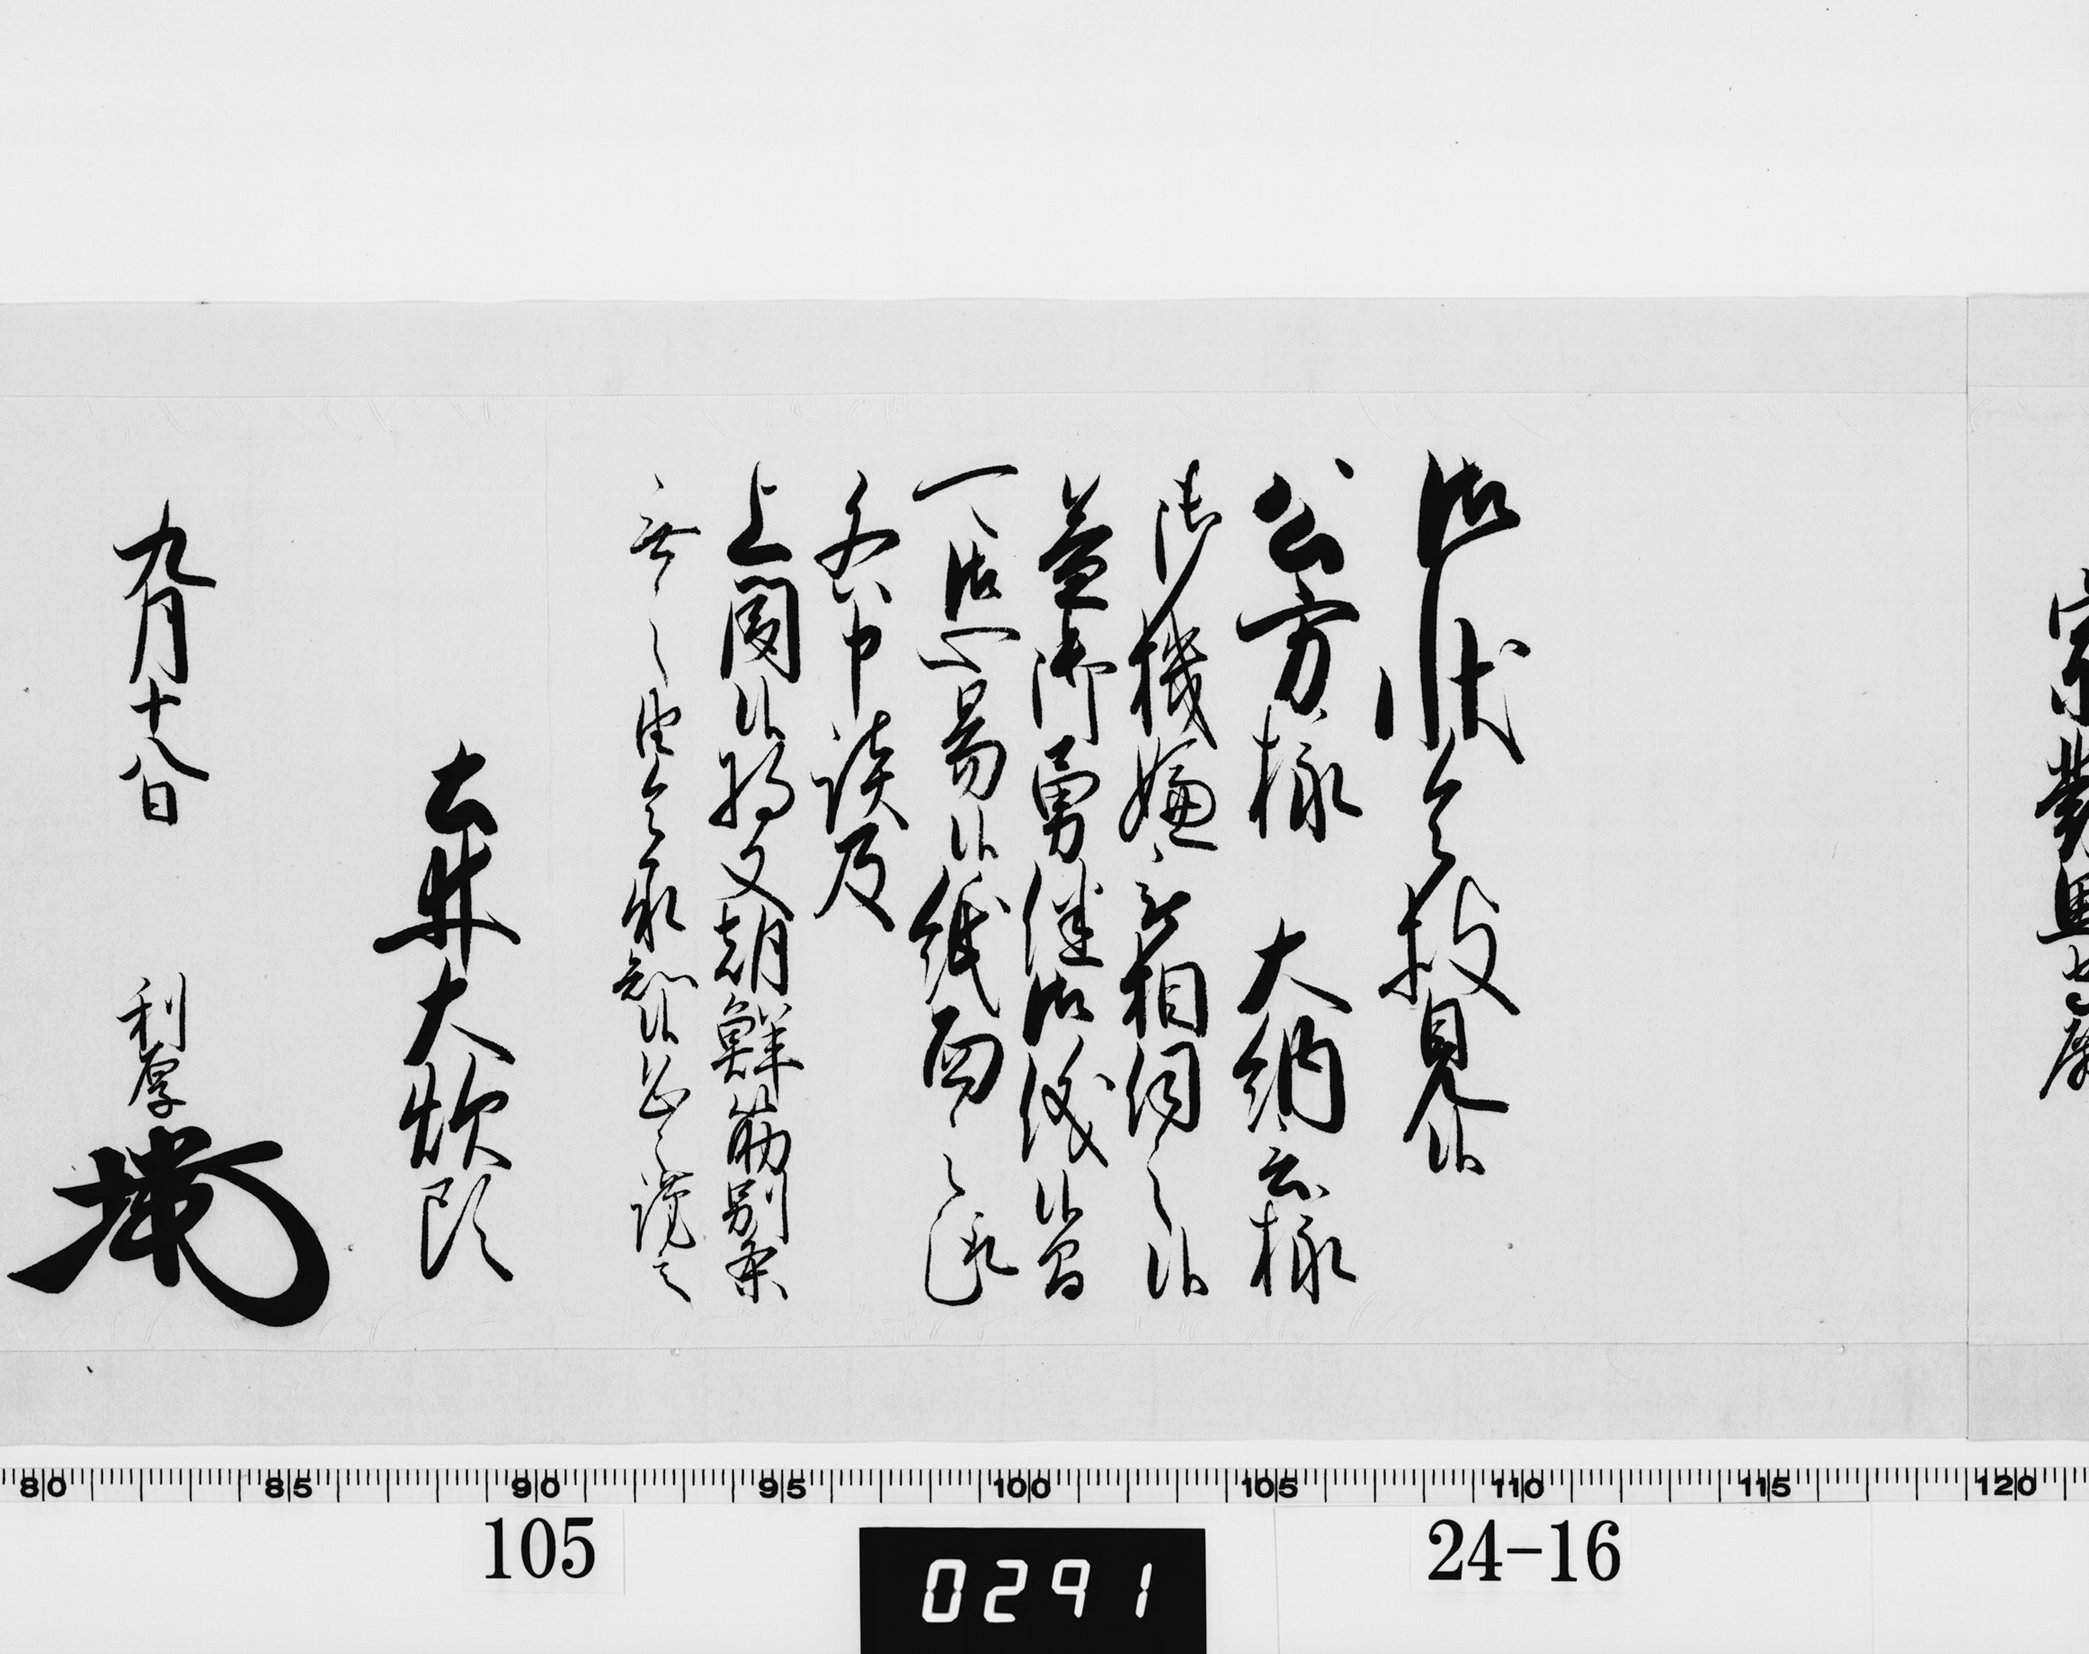 宗對馬守殿
御状令披見候
公方様　大納言様
御機嫌被相伺之候
益御勇健御儀候間
可御心易候紙面之趣
各申談及
上聞候将又朝鮮筋別条
無之由令承知候恐々謹言
土井大炊頭
九月十八日　利厚
80 85 90 95 100 105 110 115 120
105　24-16
0291